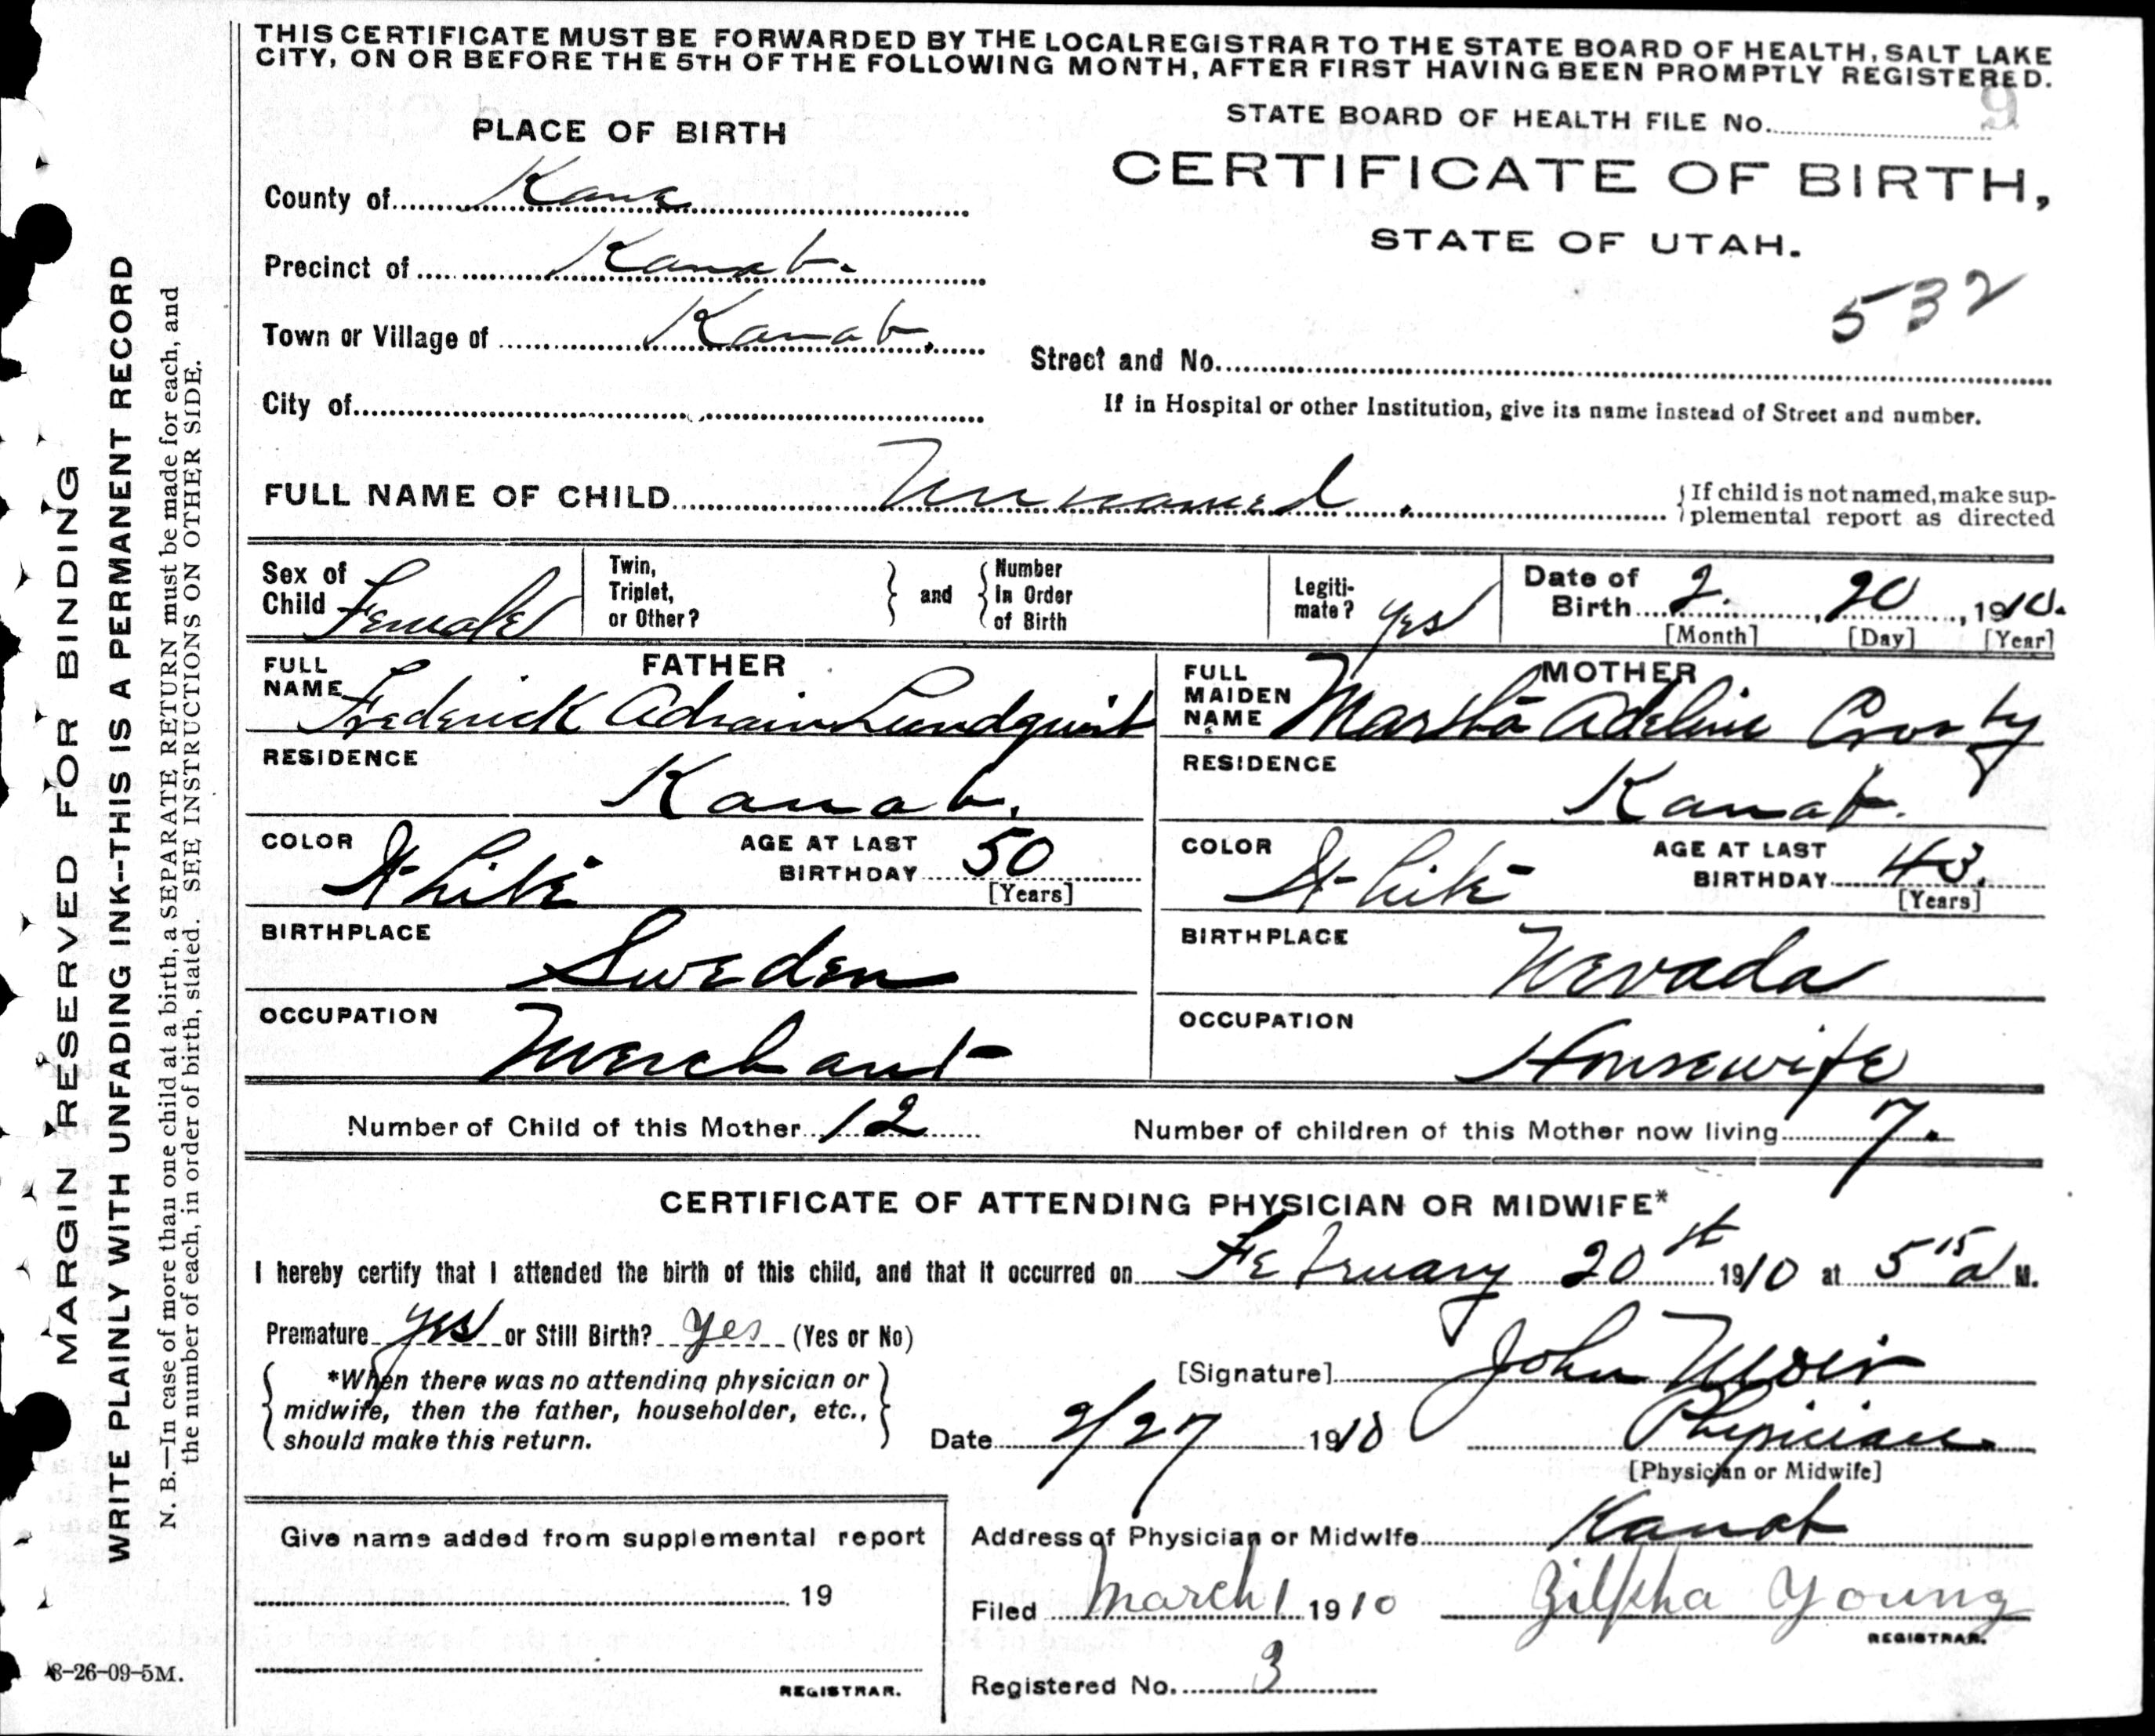 THIS CERTIFICATE MUST BE FORWARDED BY THE LOCAL REGISTRAR TO THE STATE BOARD OF HEALTH, SALT LAKE
CITY, ON OR BEFORE THE 5TH OF THE FOLLOWING MONTH, AFTER FIRST HAVING BEEN PROMPTLY REGISTERED.
9
STATE BOARD OF HEALTH FILE No.
PLACE OF BIRTH
CERTIFICATE OF BIRTH,
STATE OF UTAH.
County of Kane
Precinct of Kanab.
532
Town or Village of Kanab.
Street and No.
City of
If in Hospital or other Institution, give its name instead of Street and number.
FULL NAME OF CHILD Unnamed.
If child is not named, make sup-
plemental report as directed
Sex of Child Female
Twin, Triplet, or Other?
and
Number In Order of Birth
Legiti-mate? yes
Date of Birth 2. 20, 1910.
[Month] [Day] [Year]
FATHER
FULL NAME Frederick Adrain Lundquist
RESIDENCE Kanab.
COLOR White
AGE AT LAST BIRTHDAY 50
[Years]
BIRTHPLACE Sweden
OCCUPATION Merchant
MOTHER
FULL MAIDEN NAME Martha Adeline Crosby
RESIDENCE Kanab.
COLOR White
AGE AT LAST BIRTHDAY 43.
[Years]
BIRTHPLACE Nevada
OCCUPATION Housewife
Number of Child of this Mother 12
Number of children of this Mother now living 7.
CERTIFICATE OF ATTENDING PHYSICIAN OR MIDWIFE*
I hereby certify that I attended the birth of this child, and that it occurred on February 20st 1910 at 5 15 a M.
Premature yes or Still Birth? yes (Yes or No)
*When there was no attending physician or
midwife, then the father, householder, etc.,
should make this return.
[Signature] John Moir
Date 2/27 1910
Physician
[Physician or Midwife]
Give name added from supplemental report
19
REGISTRAR.
Address of Physician or Midwife Kanab
Filed March 1 1910
Zilpha Young
REGISTRAR.
Registered No. 3
8-26-09-5M.
MARGIN RESERVED FOR BINDING
WRITE PLAINLY WITH UNFADING INK--THIS IS A PERMANENT RECORD
N. B.—In case of more than one child at a birth, a SEPARATE RETURN must be made for each, and
the number of each, in order of birth, stated. SEE INSTRUCTIONS ON OTHER SIDE.